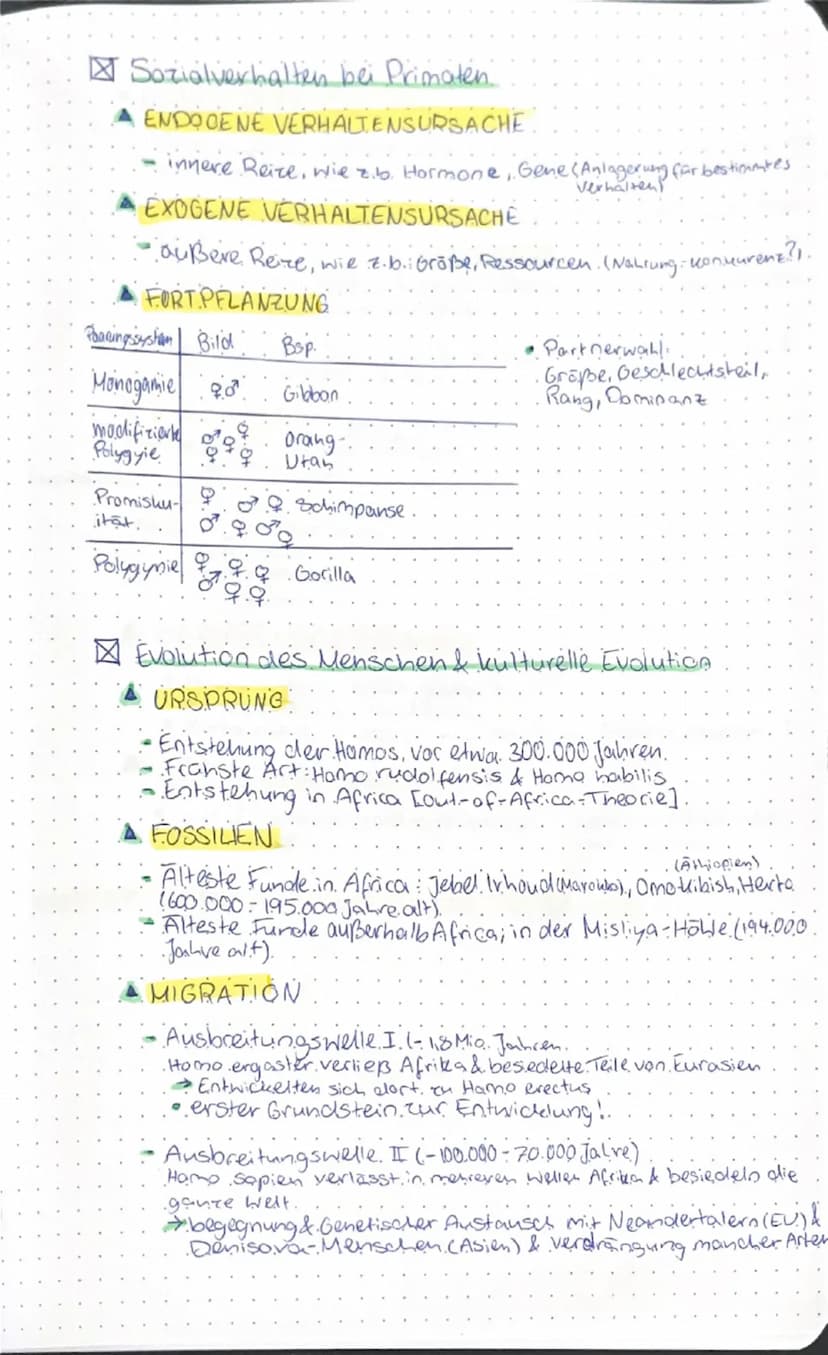 Sozialverhalten bei Primaten
ENDOGENE VERHALTENSURSACHE
- innere Reize, wie z.b. Hormone, Gene (Anlagerung für bestimmtes
Verhalten)
EXOGENE VERHALTENSURSACHE
- äußere Reize, wie z.b.: Größe, Ressourcen (Nahrung-Konkurenz?)
FORTPFLANZUNG
Paarungssystem Bild Bsp.
Monogamie ♀♂ Gibbon
modifizierte ♂♀♀ Orang-
Polygyie ♀♀♀ Utan
Promisku- ♀ ♂♀ Schimpanse
ität ♂♀♂♀
Polygynie ♀♀♀ Gorilla
♂♀♀
• Partnerwahl:
Größe, Geschlechtsteil,
Rang, Dominanz
Evolution des Menschen & kulturelle Evolution
URSPRUNG
- Entstehung der Homos, vor etwa 300.000 Jahren
- Frühste Art: Homo rudolfensis & Homo habilis
- Entstehung in Africa [out-of-Africa-Theorie]
FOSSILIEN
(Äthiopien)
- Älteste Funde in Africa: Jebel Irhoud (Marokko), Omo Kibish, Herto
(600.000 - 195.000 Jahre alt)
- Älteste Funde außerhalb Africa; in der Misliya-Höhle (194.000
Jahre alt)
MIGRATION
- Ausbreitungswelle I (- 1,8 Mio. Jahren
Homo ergaster verließ Afrika & besiedelte Teile von Eurasien
→ Entwickelten sich dort zu Homo erectus
• erster Grundstein zur Entwicklung!
- Ausbreitungswelle II (- 100.000 - 70.000 Jahre)
Homo sapien verlässt in mehreren Wellen Afrika & besiedeln die
ganze Welt
→ begegnung & Genetischer Austausch mit Neandertalern (EU) &
Denisova-Menschen (Asien) & verdrängung mancher Arten